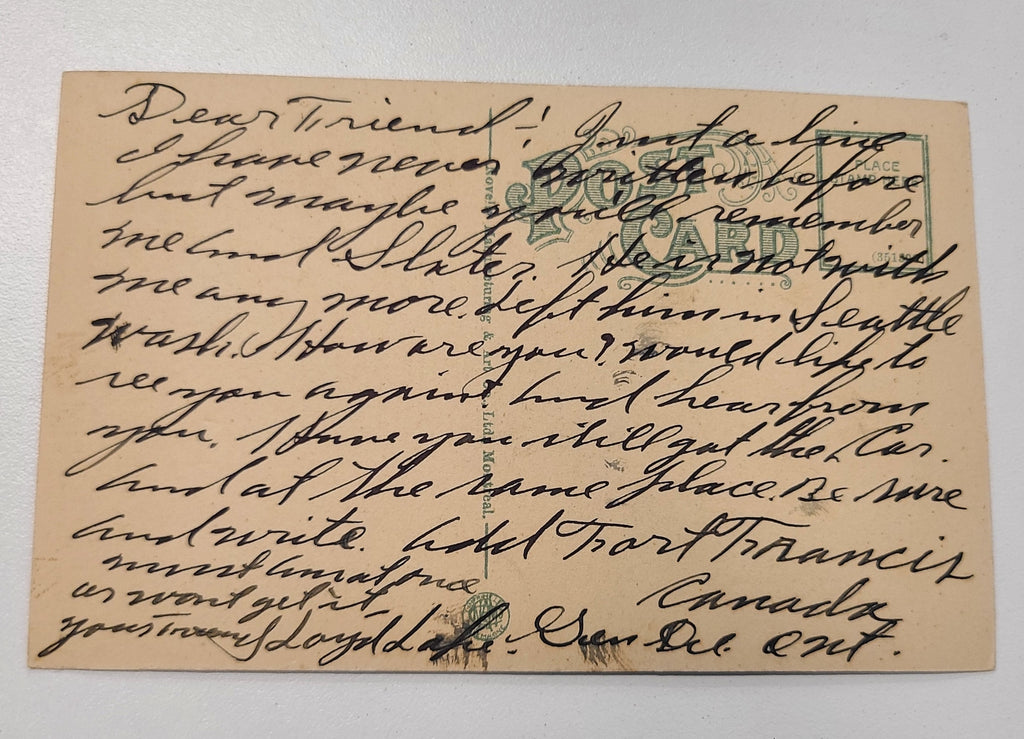 Dear Friend -! Just a line
I have never written before
but maybe you'll remember
me and Slater. He is not with
me any more. Left him in Seattle
Wash. How are you? would like to
see you again, and hear from
you. Have you still got the Car.
and at the same place. Be sure
and write. add Fort Francis
Canada
must ans at once
or wont get it
yours Loyd Lake. Gen Del. Ont.
POST CARD
PLACE
Novel Manufacturing & Art Co., Ltd. Montreal.